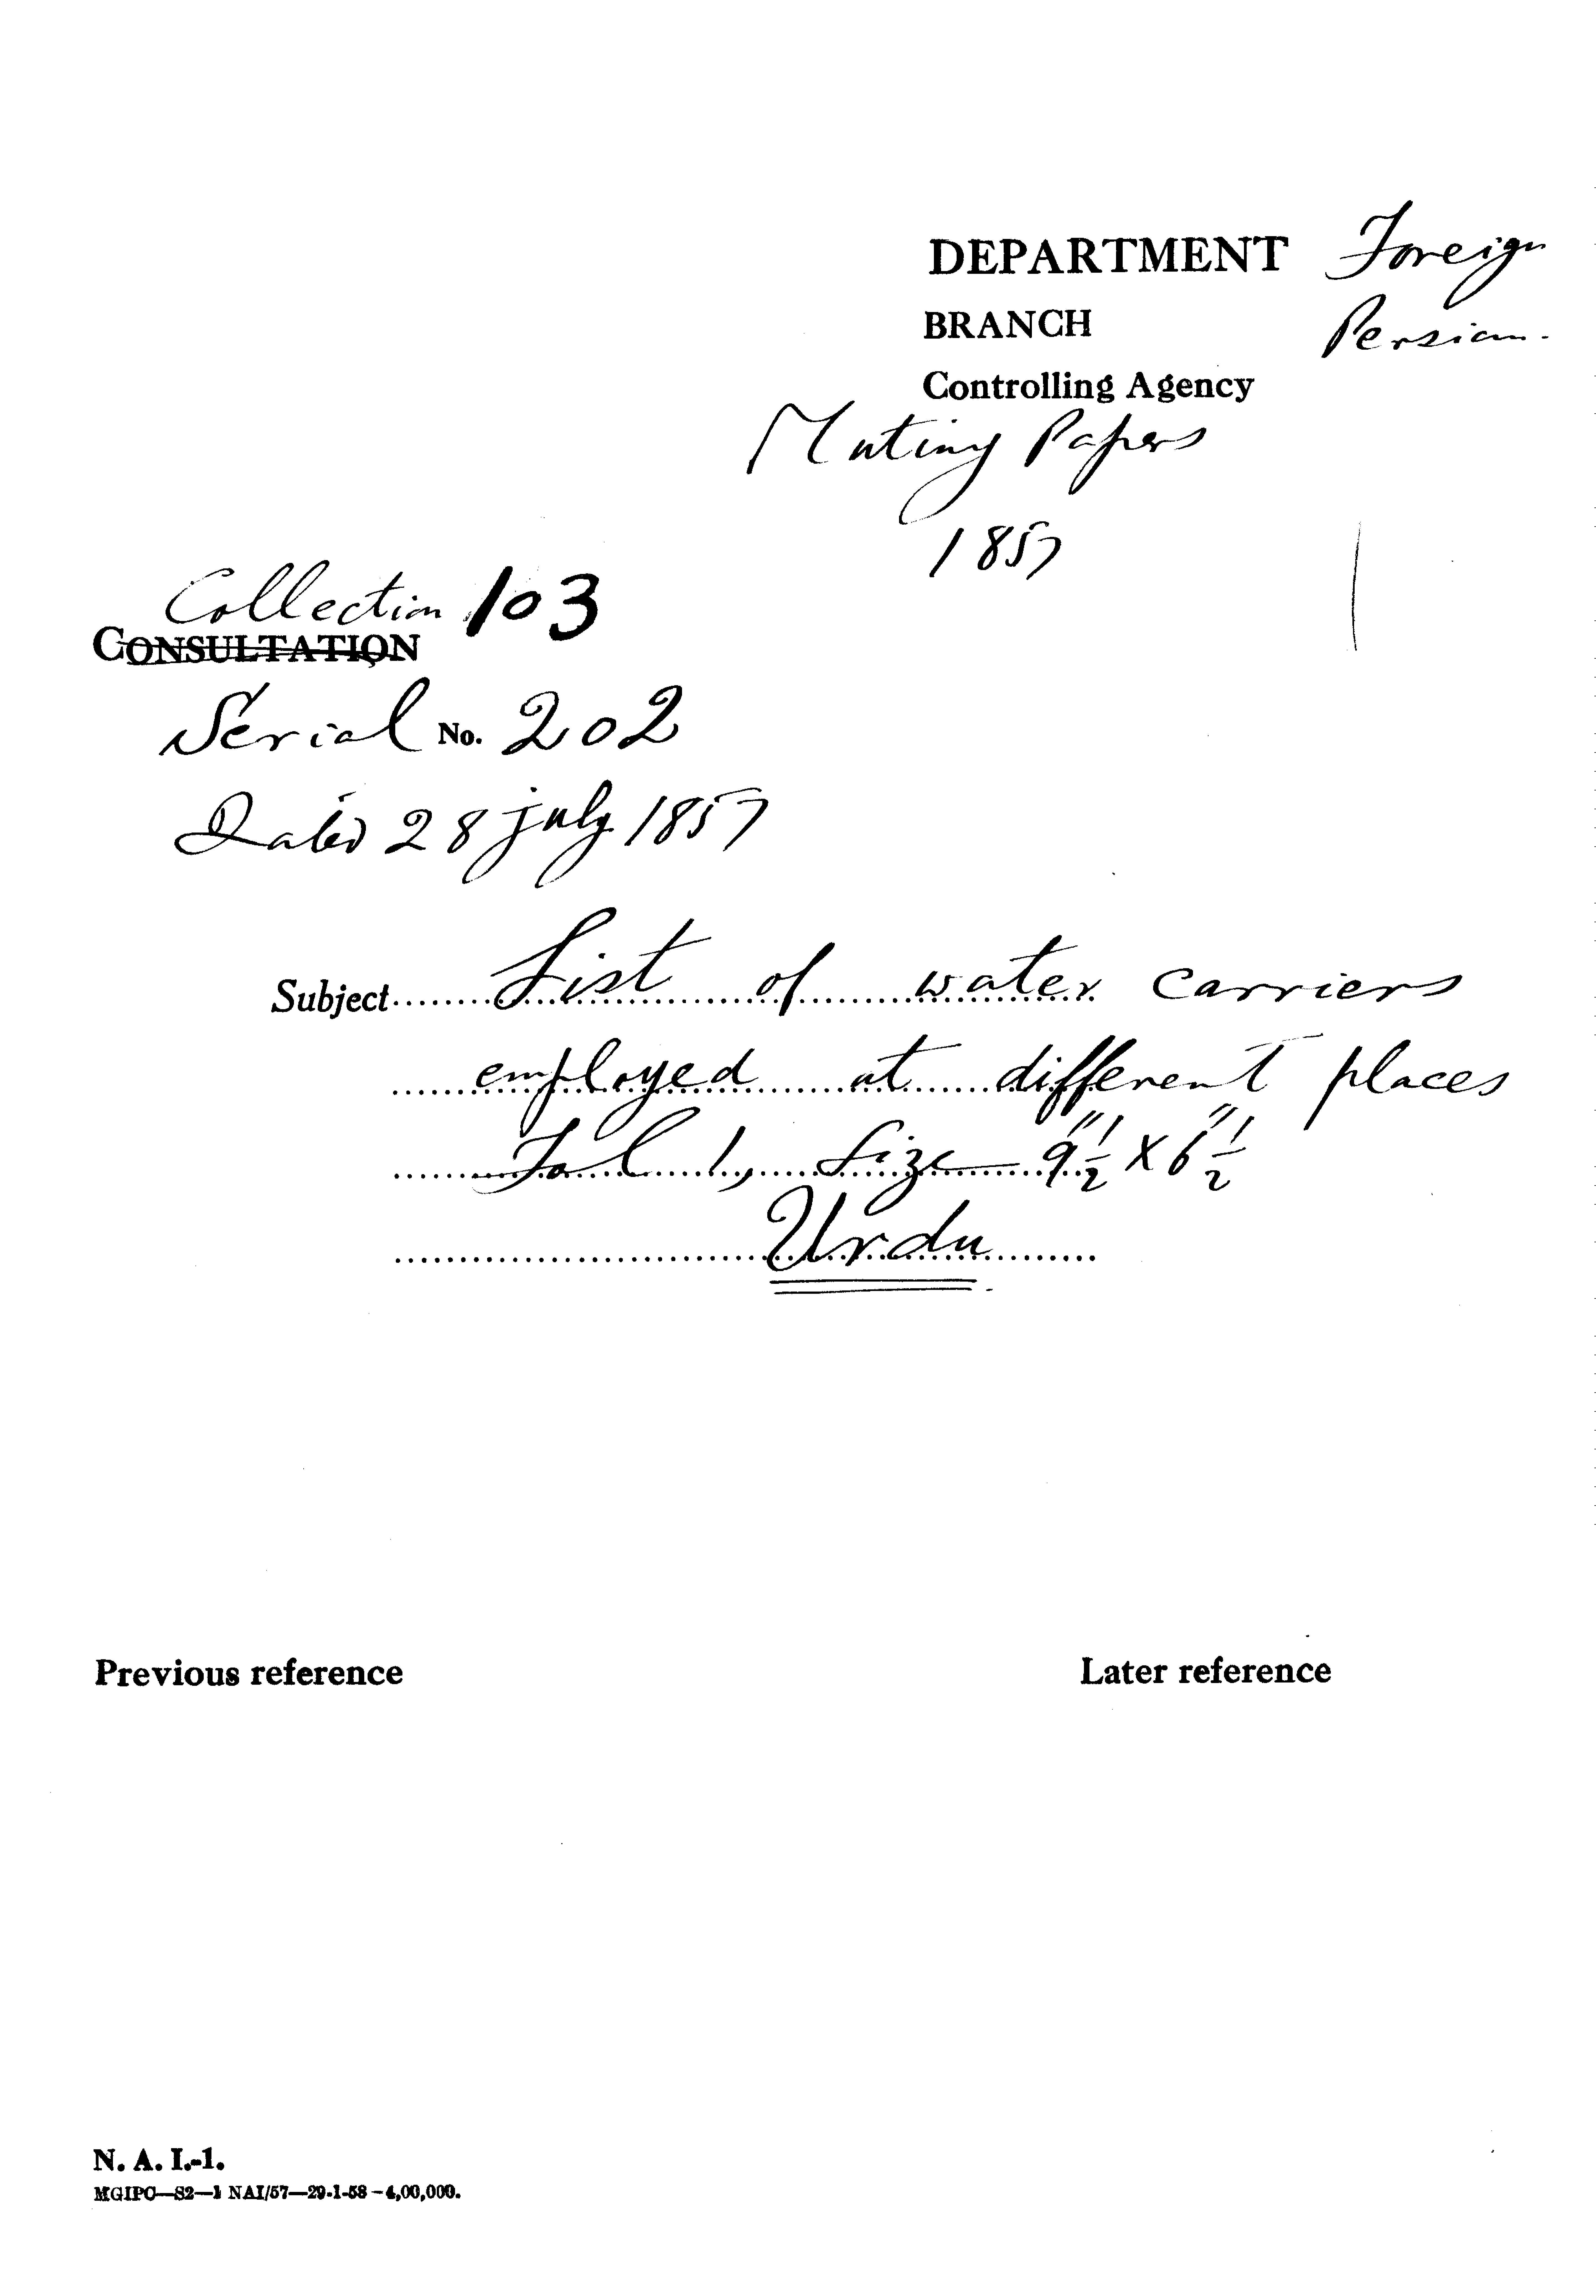 DEPARTMENT Foreign
BRANCH Persian.
Controlling Agency
Mutiny Papers
1857
Collection 103
CONSULTATION
Serial No. 202
Dated 28 july 1857
Subject........List of water carriers
employed at different places
Fol 1, Size 9"½ x 6"½
Urdu
Previous reference Later reference
N. A. I.-1.
MGIPC—S2—1 NAI/57—29-1-58—4,00,000.